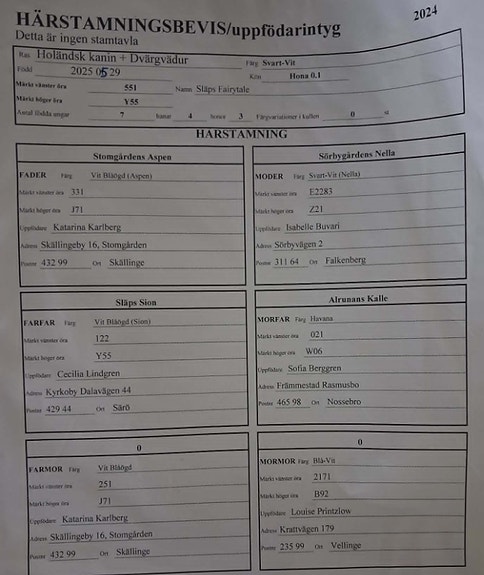 HÄRSTAMNINGSBEVIS/uppfödarintyg
2024
Detta är ingen stamtavla
Ras Holändsk kanin + Dvärgvädur Färg Svart-Vit
Född 2025 05 29 Kön Hona 0.1
Märkt vänster öra 551 Namn Släps Fairytale
Märkt höger öra Y55
Antal födda ungar 7 hanar 4 honor 3 Färgvariationer i kullen 0 st
HÄRSTAMNING
Stomgårdens Aspen
FADER Färg Vit Blåögd (Aspen)
Märkt vänster öra 331
Märkt höger öra J71
Uppfödare Katarina Karlberg
Adress Skällingeby 16, Stomgården
Postnr 432 99 Ort Skällinge
Sörbygårdens Nella
MODER Färg Svart-Vit (Nella)
Märkt vänster öra E2283
Märkt höger öra Z21
Uppfödare Isabelle Buvari
Adress Sörbyvägen 2
Postnr 311 64 Ort Falkenberg
Släps Sion
FARFAR Färg Vit Blåögd (Sion)
Märkt vänster öra 122
Märkt höger öra Y55
Uppfödare Cecilia Lindgren
Adress Kyrkoby Dalavägen 44
Postnr 429 44 Ort Särö
Alrunans Kalle
MORFAR Färg Havana
Märkt vänster öra 021
Märkt höger öra W06
Uppfödare Sofia Berggren
Adress Främmestad Rasmusbo
Postnr 465 98 Ort Nossebro
0
FARMOR Färg Vit Blåögd
Märkt vänster öra 251
Märkt höger öra J71
Uppfödare Katarina Karlberg
Adress Skällingeby 16, Stomgården
Postnr 432 99 Ort Skällinge
0
MORMOR Färg Blå-Vit
Märkt vänster öra 2171
Märkt höger öra B92
Uppfödare Louise Printzlow
Adress Krattvägen 179
Postnr 235 99 Ort Vellinge